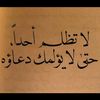 لا تظلم أحداً،
حتى لا يؤلمك دعاؤه